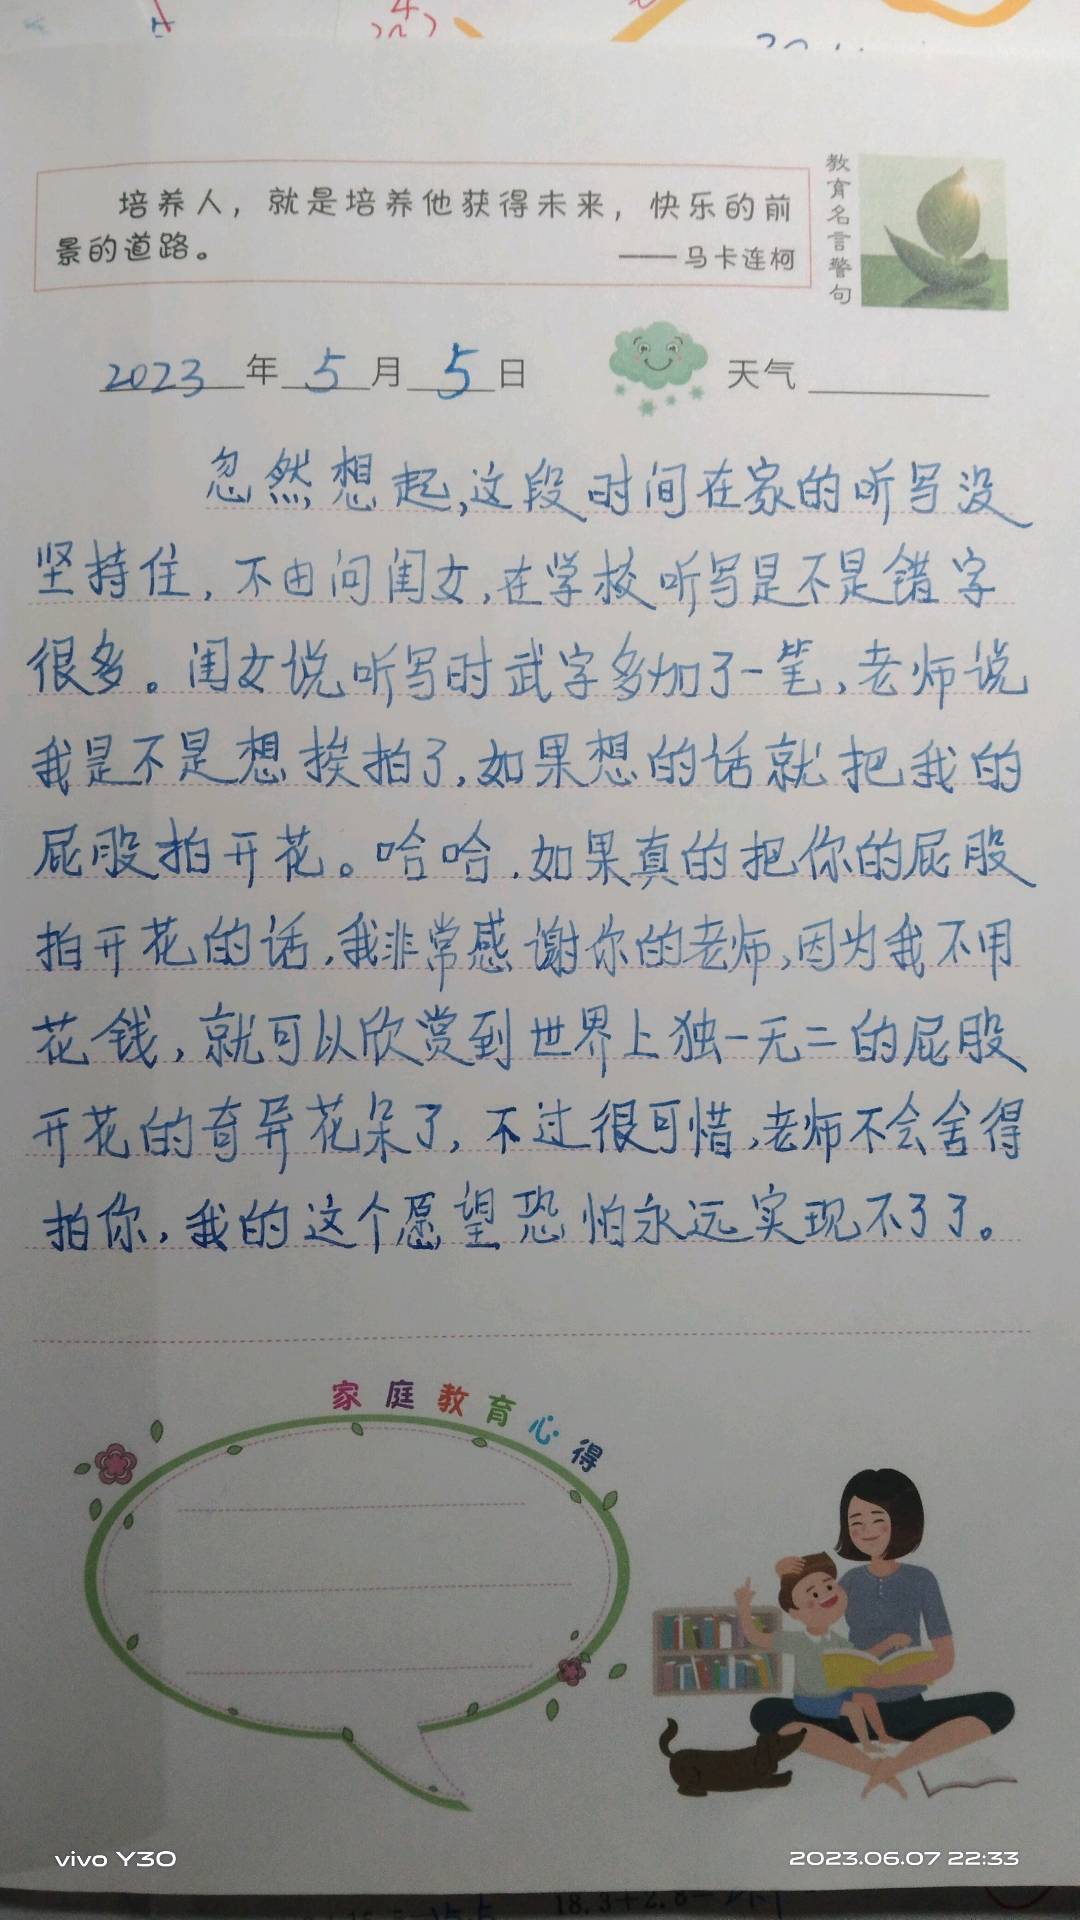 培养人，就是培养他获得未来，快乐的前
景的道路。
——马卡连柯
教育名言警句
2023年5月5日
天气
忽然想起,这段时间在家的听写没
坚持住，不由问闺女,在学校听写是不是错字
很多。闺女说听写时武字多加了一笔,老师说
我是不是想挨拍了,如果想的话就把我的
屁股拍开花。哈哈,如果真的把你的屁股
拍开花的话,我非常感谢你的老师,因为我不用
花钱,就可以欣赏到世界上独一无二的屁股
开花的奇异花朵了,不过很可惜,老师不会舍得
拍你,我的这个愿望恐怕永远实现不了了。
家庭教育心得
vivo Y30
2023.06.07 22:33